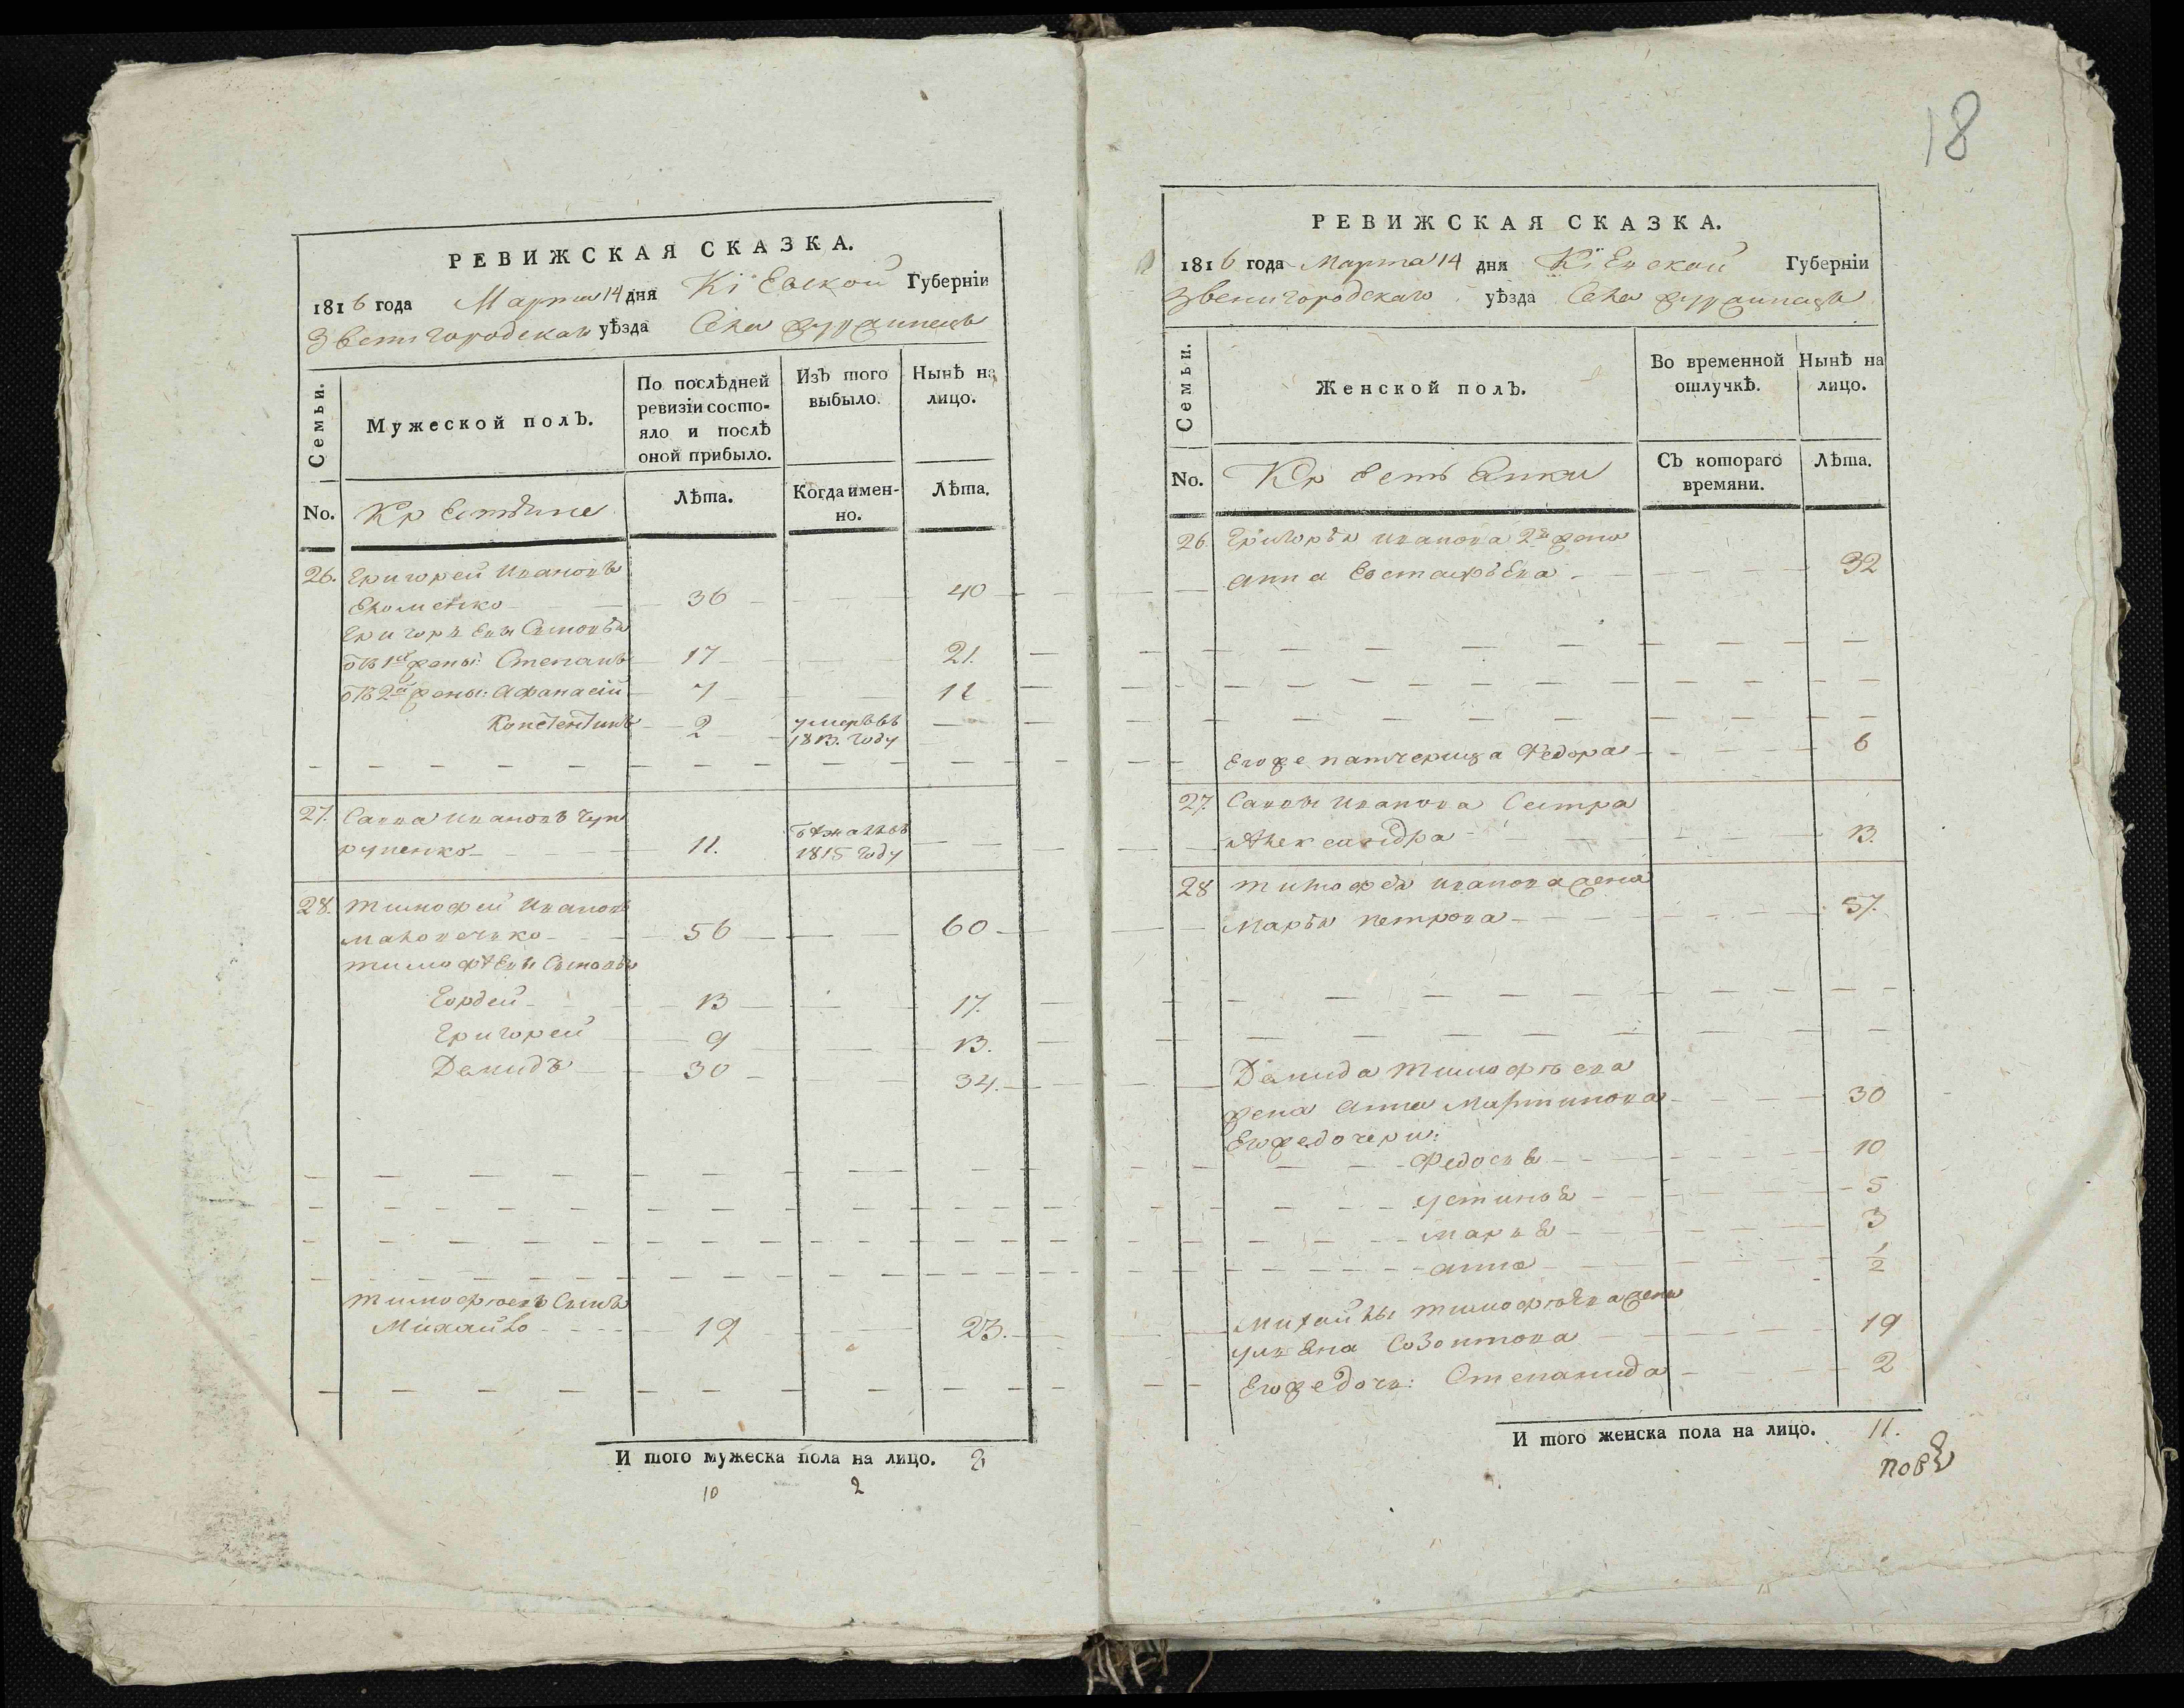 РЕВИЖСКАЯ СКАЗКА.
1816 года Марта 14 дня Кіевской Губерніи
Звенигородскаго уѣзда Села
Семьи.
Мужеской полъ.
По послѣдней ревизіи состояло и послѣ оной прибыло.
Изъ того выбыло.
Нынѣ на лицо.
No.
Крестьяне
Лѣта.
Когда именно.
Лѣта.
26. Григорей Ивановъ
36 40
Григорьевы Сыновья
отъ 1й жены: Степанъ 17 21.
отъ 2й жены: Афанасій 7 11
Константинъ 2 умеръ въ
1813. году
27. Савва Ивановъ Чуп
рупенко 11. бѣжалъ въ
1815 году
28. Тимофей Ивановъ
56 60
Тимофѣевы Сыновья
Гордей 13 17.
Григорей 9 13.
Демидъ 30 34.
Тимофеевъ Сынъ
Михайло 19 23.
И того мужеска пола на лицо. 8
10 2
18
РЕВИЖСКАЯ СКАЗКА.
1816 года Марта 14 дня Кіевской Губерніи
Звенигородскаго уѣзда Села
Семьи.
Женской полъ.
Во временной отлучкѣ.
Нынѣ на лицо.
No.
Крестьянки
Съ котораго времяни.
Лѣта.
26. Григорья Иванова 2я жена
Анна Евстафьева 32
Его же патчерица Федора 6
27. Саввы Иванова Сестра
Александра 13.
28 Тимофея Иванова жена
Марья Петрова 57.
Демида Тимофѣева
жена Анна Мартинова 30
Его же дочери:
Федосья 10
Устинья 5
Марья 3
Анна 1/2
Михайлы Тимофѣева жена
Ульяна Созонтова 19
Его же дочь: Степанида 2
И того женска пола на лицо. 11.